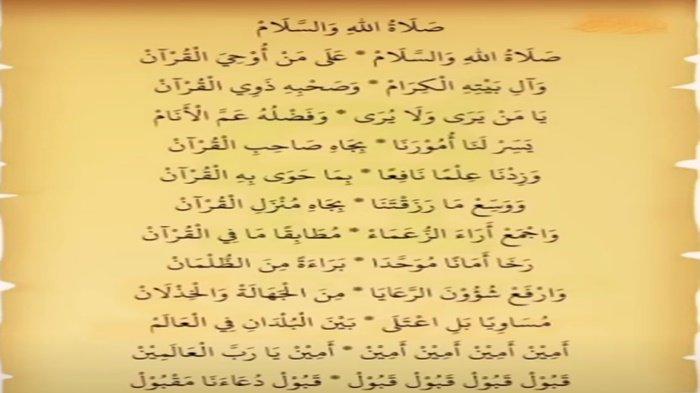 صَلَاةُ اللهِ وَالسَّلَامْ
صَلَاةُ اللهِ وَالسَّلَامْ * عَلَى مَنْ أُوْحِيَ الْقُرْآنْ
وَآلِ بَيْتِهِ الْكِرَامْ * وَصَحْبِهِ ذَوِي الْقُرْآنْ
يَا مَنْ يَرَى وَلَا يُرَى * وَفَضْلُهُ عَمَّ الْأَنَامْ
يَسِّرْ لَنَا أُمُوْرَنَا * بِجَاهِ صَاحِبِ الْقُرْآنْ
وَزِدْنَا عِلْمًا نَافِعًا * بِمَا حَوَى بِهِ الْقُرْآنْ
وَوَسِّعْ مَا رَزَقْتَنَا * بِجَاهِ مُنْزَلِ الْقُرْآنْ
وَاجْمَعْ أَرَاءَ الزُّعَمَاءْ * مُطَابِقًا مَا فِي الْقُرْآنْ
رَخَا أَمَانًا مُوَحَّدَا * بَرَاءَةً مِنَ الظُّلْمَانْ
وَارْفَعْ شُؤُوْنَ الرَّعَايَا * مِنَ الْجَهَالَةْ وَالْخِذْلَانْ
مُسَاوِيًا بَلِ اعْتَلَى * بَيْنَ الْبُلْدَانِ فِي الْعَالَمْ
أَمِيْنْ أَمِيْنْ أَمِيْنْ أَمِيْنْ * أَمِيْنْ يَا رَبَّ الْعَالَمِيْنْ
قَبُوْلْ قَبُوْلْ قَبُوْلْ قَبُوْلْ * قَبُوْلْ دُعَاءَنَا مَقْبُوْلْ